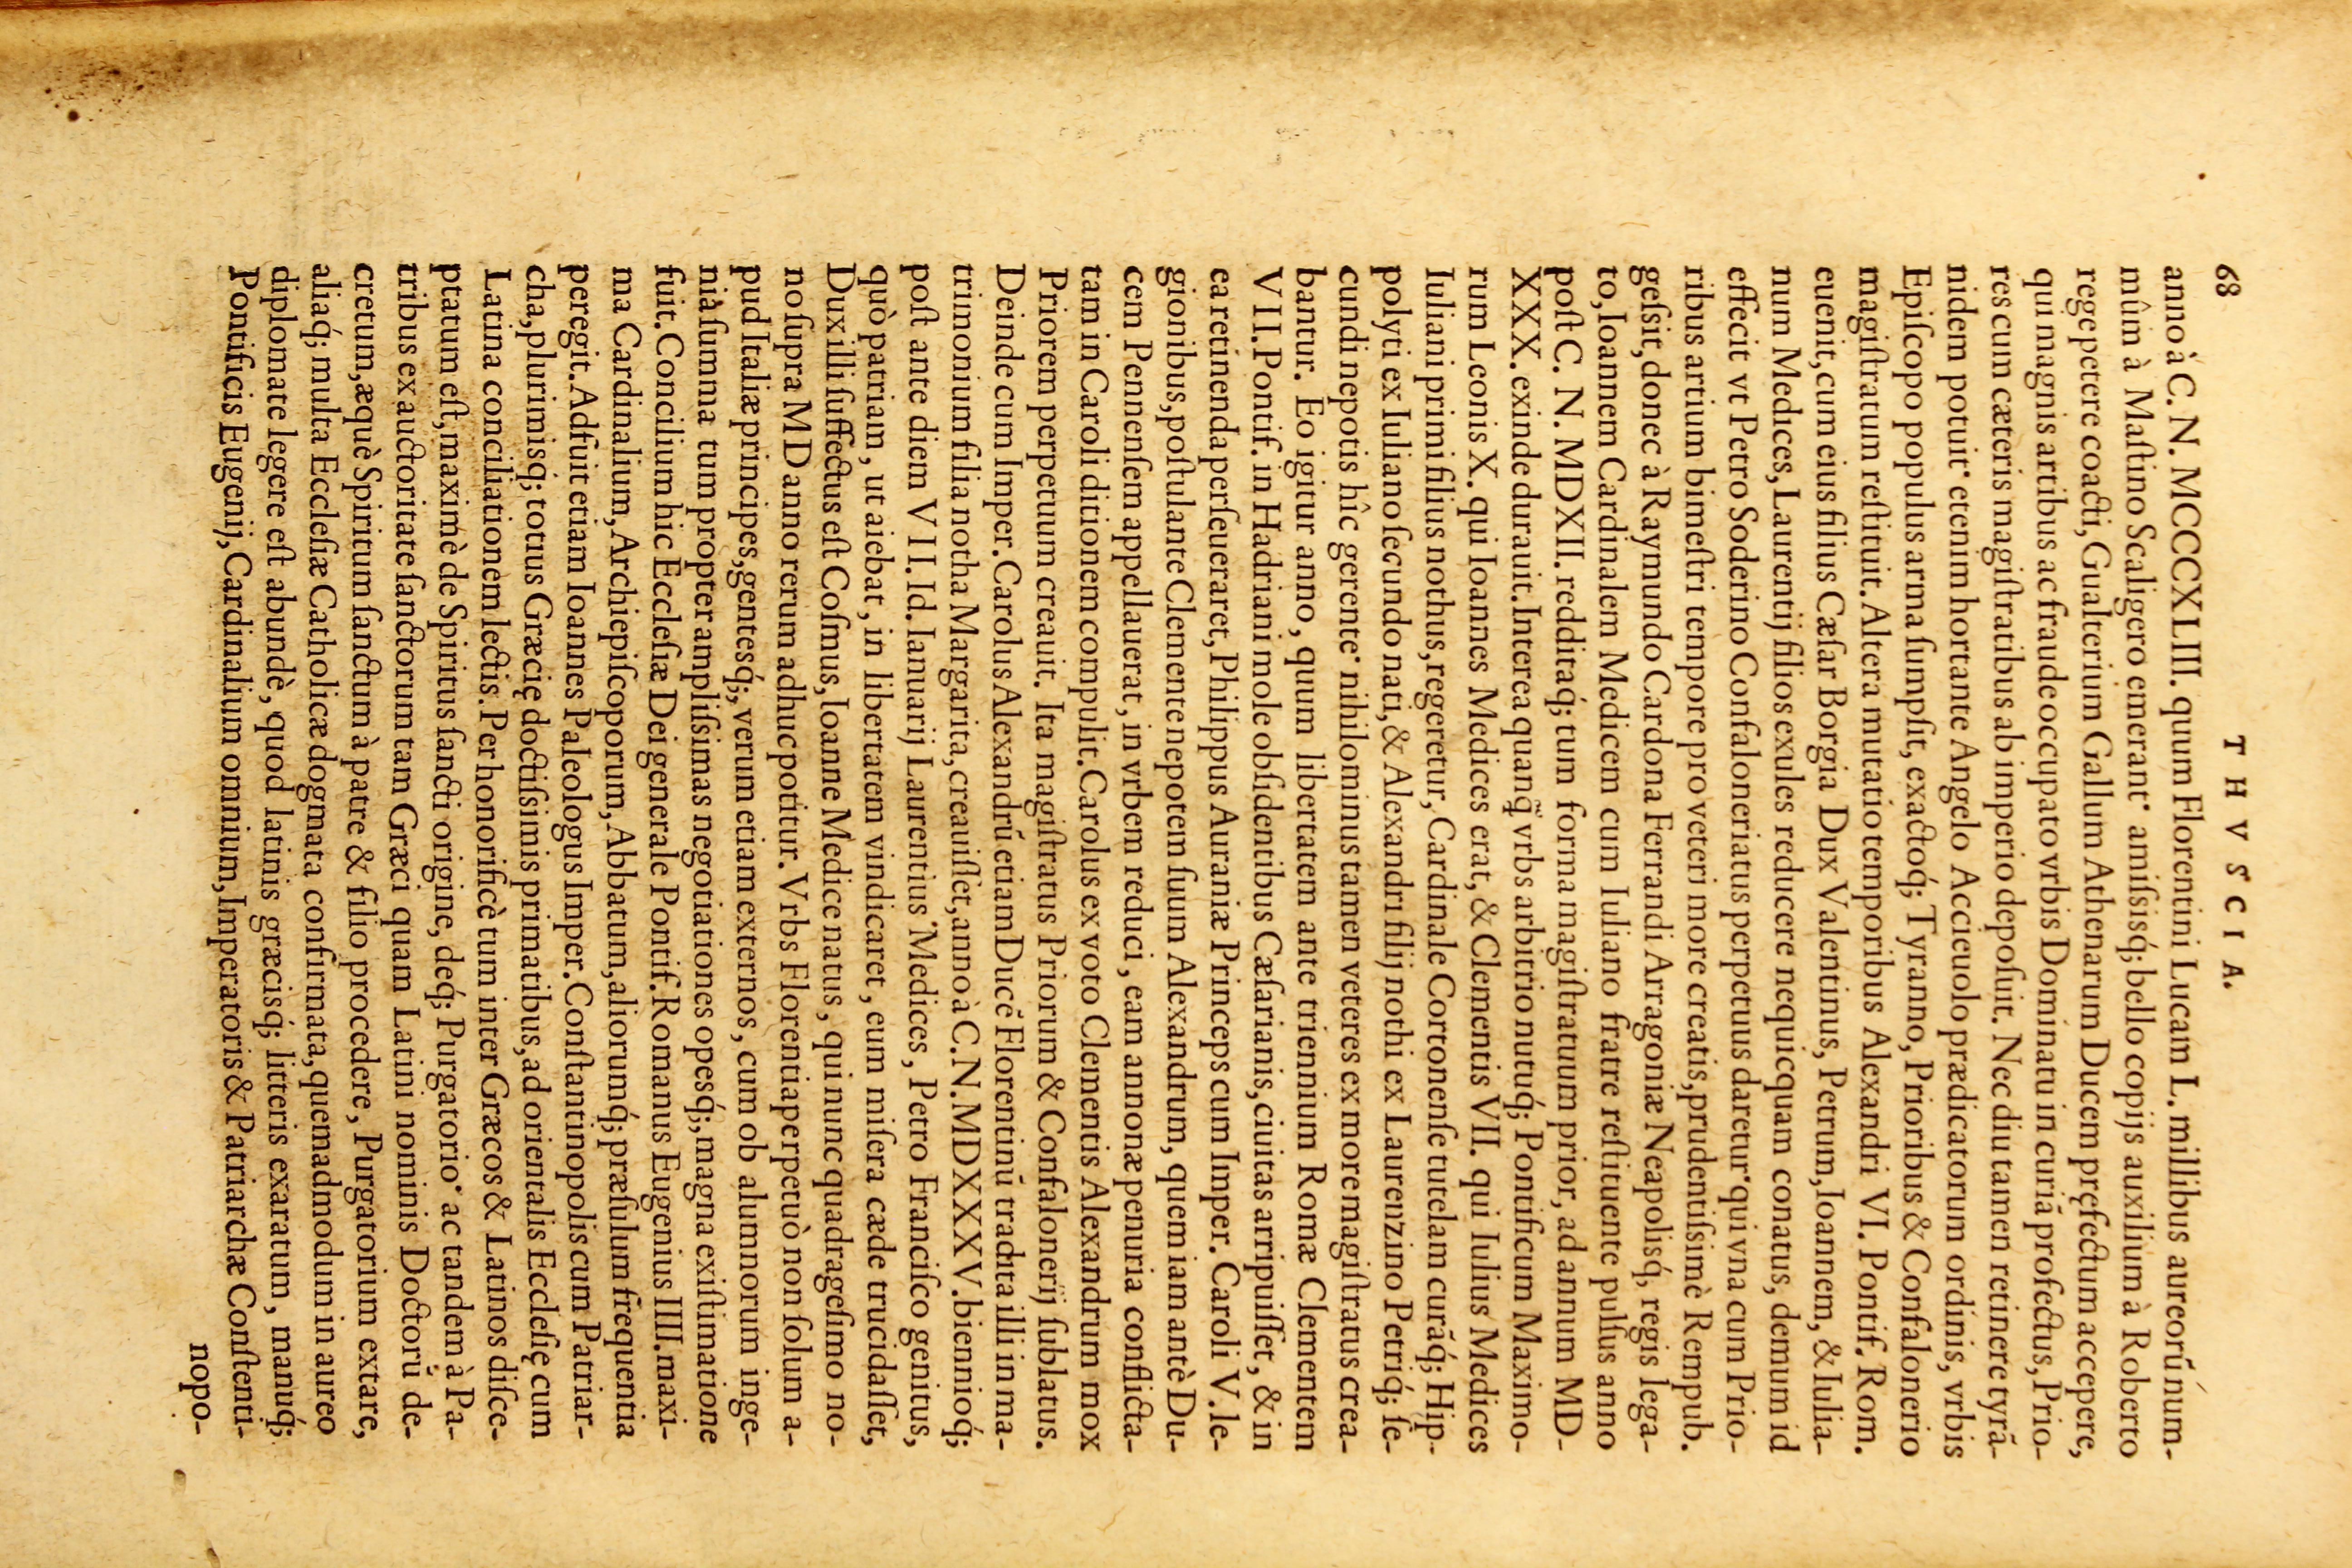 68
THVSCIA.
anno à C. N. MCCCXLIII. quum Florentini Lucam L. millibus aureorũ num-
mûm à Maſtino Scaligero emerant· amiſsisq́; bello copijs auxilium à Roberto
rege petere coacti, Gualterium Gallum Athenarum Ducem pręfectum accepere,
qui magnis artibus ac fraude occupato vrbis Dominatu in curiã profectus, Prio-
res cum cæteris magiſtratibus ab imperio depoſuit. Nec diu tamen retinere tyrã-
nidem potuit· etenim hortante Angelo Accieuolo prædicatorum ordinis, vrbis
Epiſcopo populus arma ſumpſit, exactoq́; Tyranno, Prioribus & Confalonerio
magiſtratum reſtituit. Altera mutatio temporibus Alexandri VI. Pontif. Rom.
euenit, cum eius filius Cæſar Borgia Dux Valentinus, Petrum, Ioannem, & Iulia-
num Medices, Laurentij filios exules reducere nequicquam conatus, demum id
effecit vt Petro Soderino Confaloneriatus perpetuus daretur· qui vna cum Prio-
ribus artium bimeſtri tempore pro veteri more creatis, prudentiſsimè Rempub.
geſsit, donec à Raymundo Cardona Ferrandi Arragoniæ Neapolisq́, regis lega-
to, Ioannem Cardinalem Medicem cum Iuliano fratre reſtituente pulſus anno
poſt C. N. MDXII. redditaq́; tum forma magiſtratuum prior, ad annum MD-
XXX. exinde durauit. Interea quanq̃ vrbs arbitrio nutuq́; Pontificum Maximo-
rum Leonis X. qui Ioannes Medices erat, & Clementis VII. qui Iulius Medices
Iuliani primi filius nothus, regeretur, Cardinale Cortonenſe tutelam curãq́; Hip-
polyti ex Iuliano ſecundo nati, & Alexandri filij nothi ex Laurenzino Petriq́; ſe-
cundi nepotis hîc gerente· nihilominus tamen veteres ex more magiſtratus crea-
bantur. Eo igitur anno, quum libertatem ante triennium Romæ Clementem
VII. Pontif. in Hadriani mole obſidentibus Cæſarianis, ciuitas arripuiſſet, & in
ea retinenda perſeueraret, Philippus Auraniæ Princeps cum Imper. Caroli V. le-
gionibus, poſtulante Clemente nepotem ſuum Alexandrum, quem iam antè Du-
cem Pennenſem appellauerat, in vrbem reduci, eam annonæ penuria conflicta-
tam in Caroli ditionem compulit. Carolus ex voto Clementis Alexandrum mox
Priorem perpetuum creauit. Ita magiſtratus Priorum & Confalonerij ſublatus.
Deinde cum Imper. Carolus Alexandrũ etiam Ducẽ Florentinũ tradita illi in ma-
trimonium filia notha Margarita, creauiſſet, anno à C. N. MDXXXV. biennioq́;
poſt ante diem VII. Id. Ianuarij Laurentius Medices, Petro Franciſco genitus,
quò patriam, ut aiebat, in libertatem vindicaret, eum miſera cæde trucidaſſet,
Dux illi ſuffectus eſt Coſmus, Ioanne Medice natus, qui nunc quadrageſimo no-
no ſupra MD anno rerum adhuc potitur. Vrbs Florentia perpetuò non ſolum a-
pud Italiæ principes, gentesq́;, verum etiam externos, cum ob alumnorum inge-
nia ſumma tum propter ampliſsimas negotiationes opesq́;, magna exiſtimatione
fuit. Concilium hic Eccleſiæ Dei generale Pontif. Romanus Eugenius IIII. maxi-
ma Cardinalium, Archiepiſcoporum, Abbatum, aliorumq́; præſulum frequentia
peregit. Adfuit etiam Ioannes Paleologus Imper. Conſtantinopolis cum Patriar-
cha, plurimisq́; totius Græcię doctiſsimis primatibus, ad orientalis Eccleſię cum
Latina conciliationem lectis. Perhonorificè tum inter Græcos & Latinos diſce-
ptatum eſt, maximè de Spiritus ſancti origine, deq́; Purgatorio· ac tandem à Pa-
tribus ex auctoritate ſanctorum tam Græci quam Latini nominis Doctorũ de-
cretum, æquè Spiritum ſanctum à patre & filio procedere, Purgatorium extare,
aliaq́; multa Eccleſiæ Catholicæ dogmata confirmata, quemadmodum in aureo
diplomate legere eſt abundè, quod latinis græcisq́; litteris exaratum, manuq́;
Pontificis Eugenij, Cardinalium omnium, Imperatoris & Patriarchæ Conſtenti-
nopo-